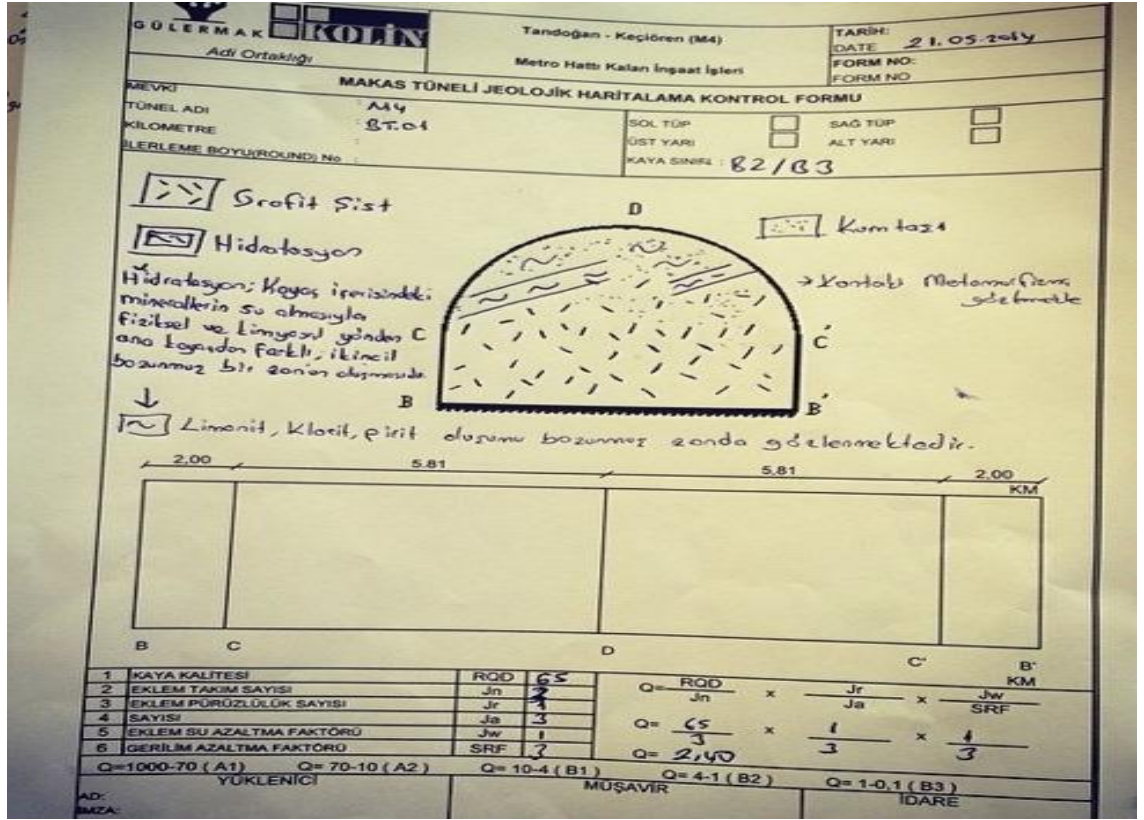 GÜLERMAK KOLİN
Adi Ortaklığı
Tandoğan - Keçiören (M4)
Metro Hattı Kalan İnşaat İşleri
TARİH:
DATE 21.05.2014
FORM NO:
FORM NO
MAKAS TÜNELİ JEOLOJİK HARİTALAMA KONTROL FORMU
MEVKİ
TÜNEL ADI : M4
KİLOMETRE : BT.01
İLERLEME BOYU(ROUND) No :
SOL TÜP SAĞ TÜP
ÜST YARI ALT YARI
KAYA SINIFI : B2/B3
Grafit Şist
Hidratasyon
Hidratasyon; Kayaç içerisindeki
minerallerin su almasıyla
fiziksel ve kimyasal yönden
ana kayadan farklı, ikincil
bozunmuz bir zonun oluşmasıdır
Kumtaşı
→ Kontakt Metamorfizma
gözlenmekte
D
C C'
B B'
Limonit, Klorit, pirit oluşumu bozunmuş zonda gözlenmektedir.
2,00 5.81 5,81 2,00
KM
B C D C' B'
KM
1 KAYA KALİTESİ RQD 65
2 EKLEM TAKIM SAYISI Jn
3 EKLEM PÜRÜZLÜLÜK SAYISI Jr
4 SAYISI Ja 3
5 EKLEM SU AZALTMA FAKTÖRÜ Jw 1
6 GERİLİM AZALTMA FAKTÖRÜ SRF 3
Q= RQD/Jn x Jr/Ja x Jw/SRF
Q= 65/3 x 1/3 x 1/3
Q= 2,40
Q=1000-70 ( A1) Q= 70-10 ( A2 ) Q= 10-4 ( B1 ) Q= 4-1 ( B2 ) Q= 1-0,1 ( B3 )
YÜKLENİCİ MÜŞAVİR İDARE
AD:
İMZA: